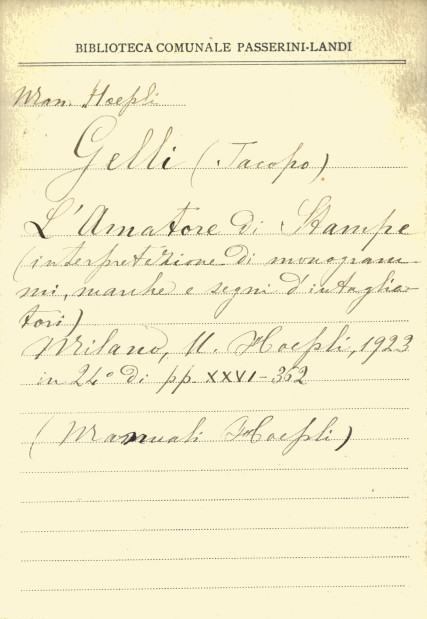 BIBLIOTECA COMUNALE PASSERINI-LANDI
Man. Hoepli
Gelli (Jacopo)
L'Amatore di Stampe
(interpretazione di monogram-
mi, marche e segni d'intaglia-
tori)
Milano, U. Hoepli, 1923
in 24° di pp. XXVI-352
(Manuali Hoepli)